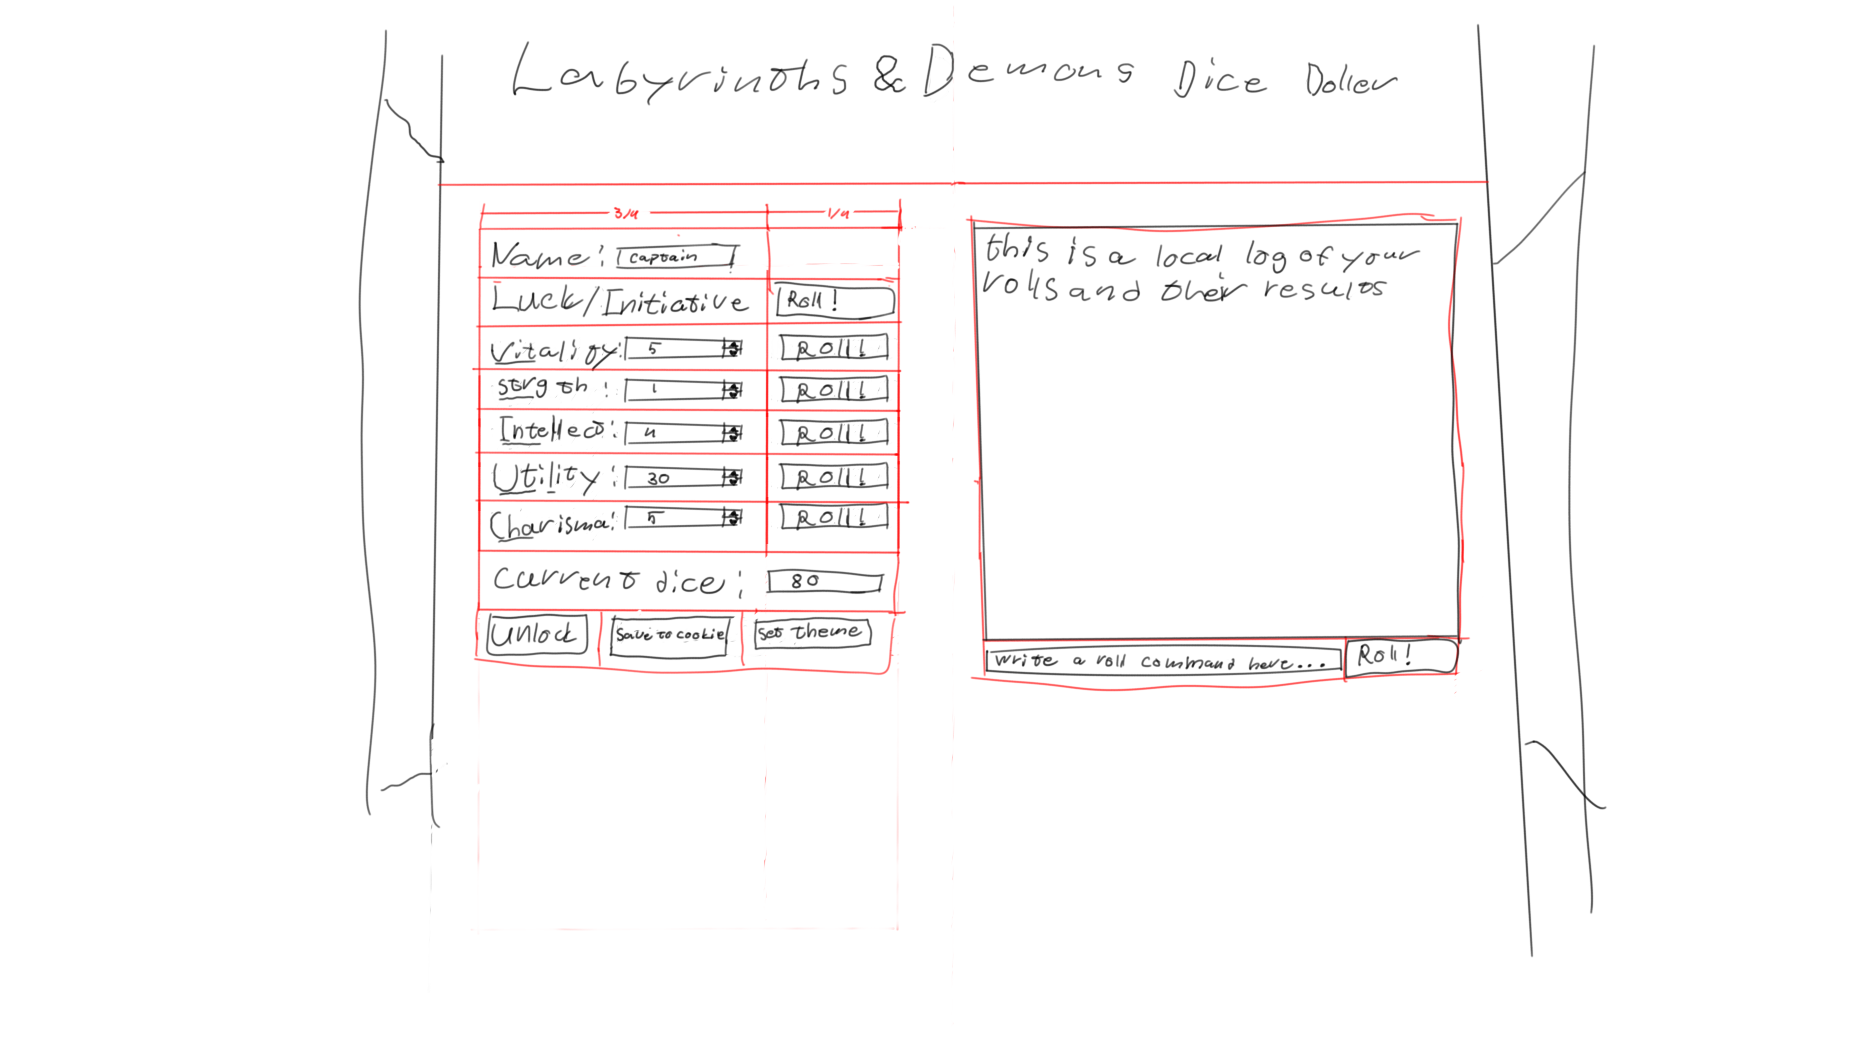 Labyrinths & Demons Dice Doller
3/4 1/4
Name: captain
Luck/Initiative Roll!
Vitality: 5 Roll!
strgth: 1 Roll!
Intellect: 4 Roll!
Utility: 30 Roll!
Charisma: 5 Roll!
current dice: 80
Unlock save to cookie set theme
this is a local log of your
rolls and their results
write a roll command here... Roll!